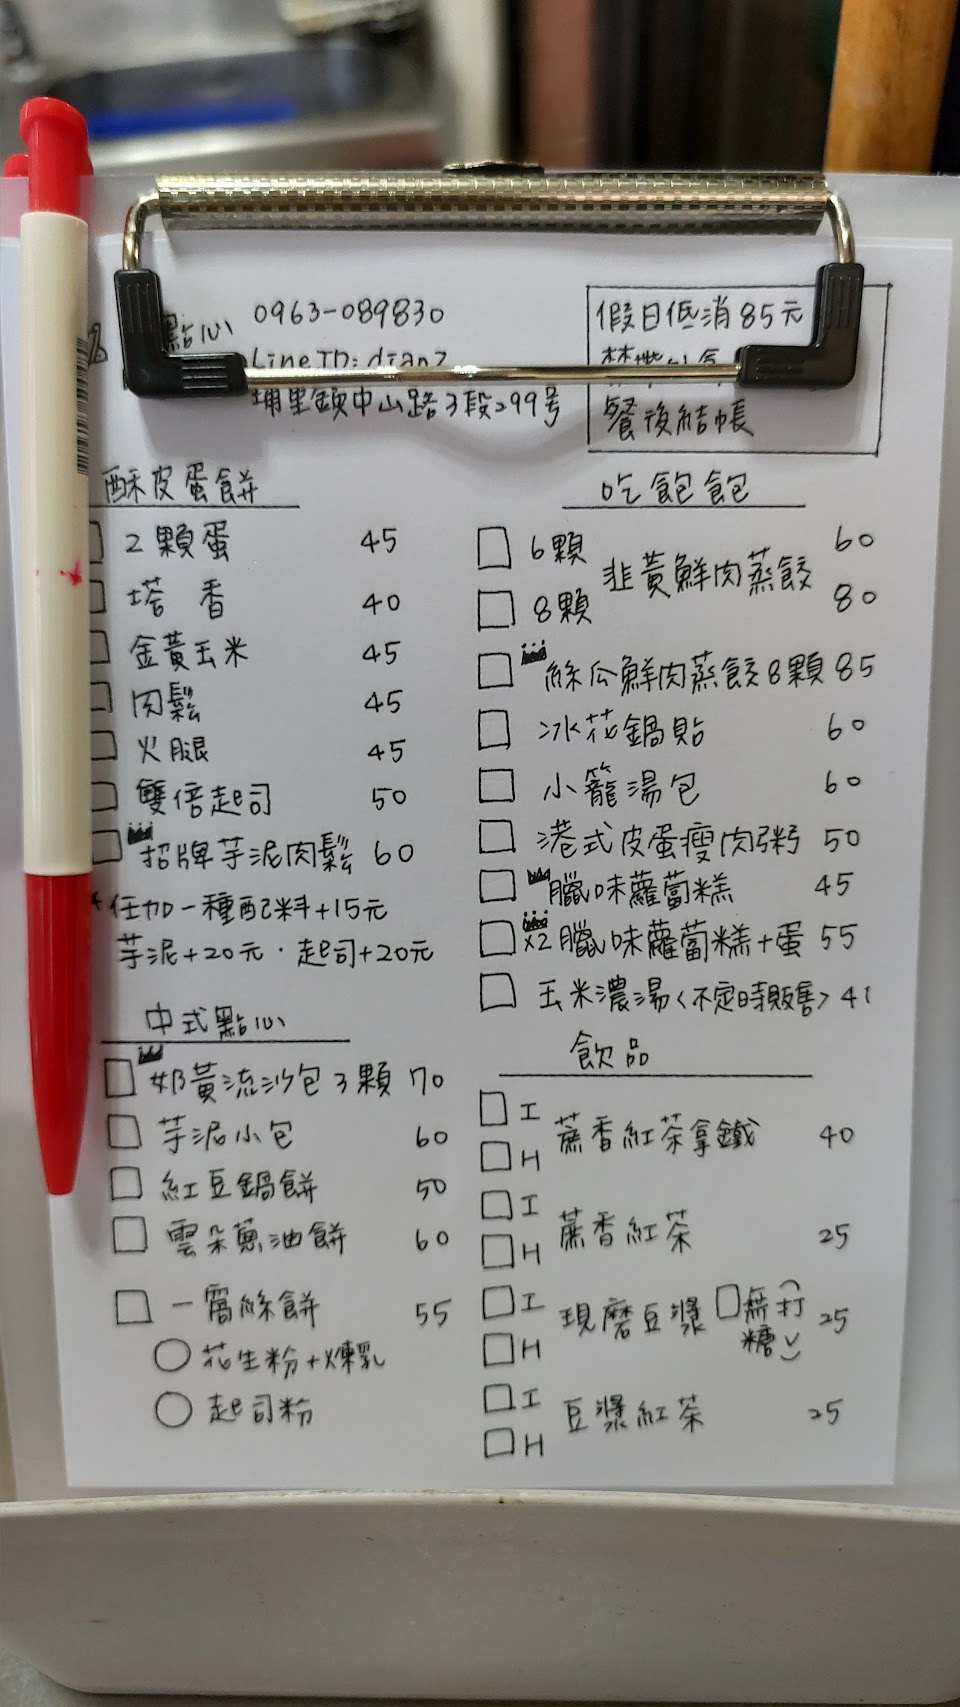 點心
0963-089830
Line ID: dian2
埔里鎮中山路3段299号
假日低消85元
餐後結帳
酥皮蛋餅
2顆蛋 45
塔香 40
金黃玉米 45
肉鬆 45
火腿 45
雙倍起司 50
招牌芋泥肉鬆 60
*任加一種配料+15元
芋泥+20元·起司+20元
中式點心
奶黃流沙包3顆 70
芋泥小包 60
紅豆鍋餅 50
雲朵蔥油餅 60
一窩絲餅 55
花生粉+煉乳
起司粉
吃飽飽
6顆 韭黃鮮肉蒸餃 60
8顆 80
絲瓜鮮肉蒸餃8顆 85
冰花鍋貼 60
小籠湯包 60
港式皮蛋瘦肉粥 50
臘味蘿蔔糕 45
x2臘味蘿蔔糕+蛋 55
玉米濃湯<不定時販售> 41
飲品
I
H 蔗香紅茶拿鐵 40
I
H 蔗香紅茶 25
I 現磨豆漿 無糖(打) 25
H
I 豆漿紅茶 25
H